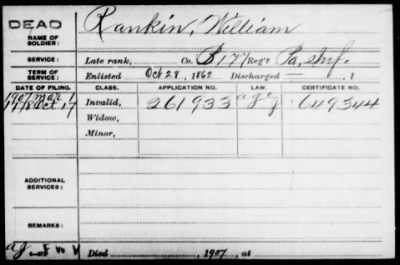 DEAD
NAME OF SOLDIER: Rankin, William
SERVICE: Late rank, Co. B 177 Reg't Pa.
TERM OF SERVICE: Enlisted Oct 28, 1862 Discharged — , 1
DATE OF FILING. CLASS. APPLICATION NO. LAW. CERTIFICATE NO.
Invalid, 261933 649344
Widow,
Minor,
ADDITIONAL SERVICES:
REMARKS:
Died 1907, at